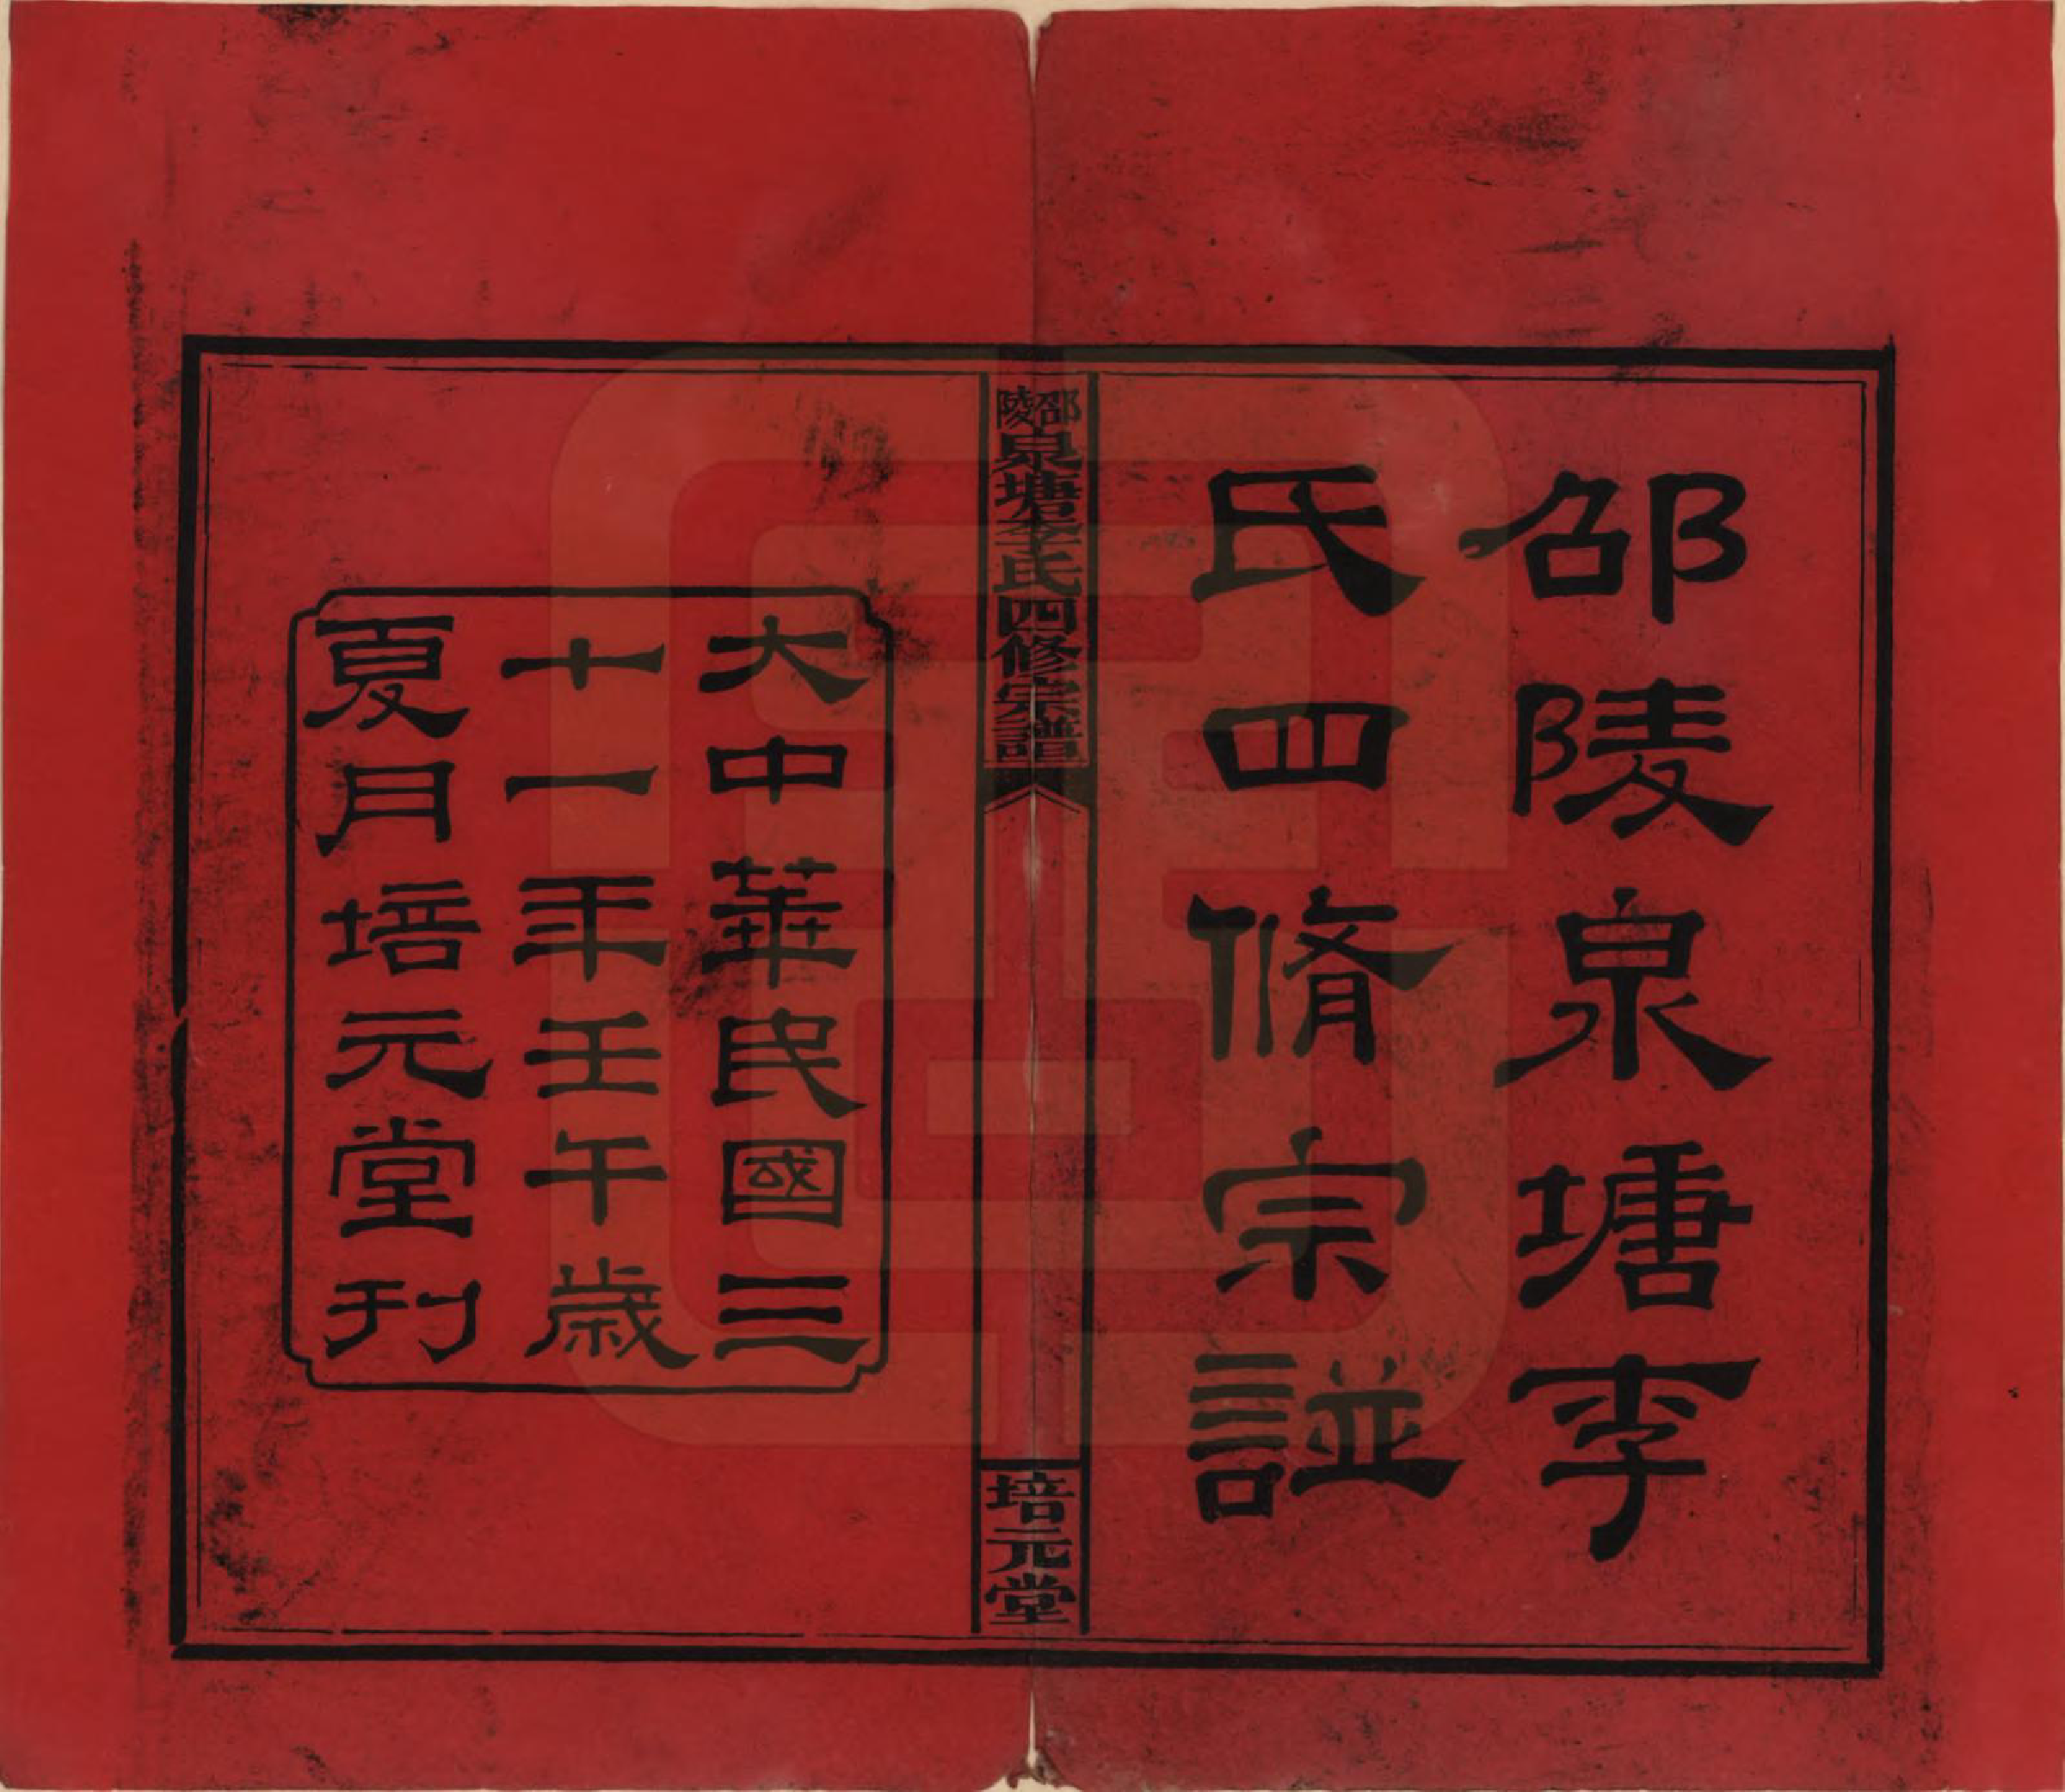 邵陵泉塘李
氏四脩宗譜
邵陵泉塘李氏四修宗譜
培元堂
大中華民國三
十一年壬午歲
夏月培元堂刊